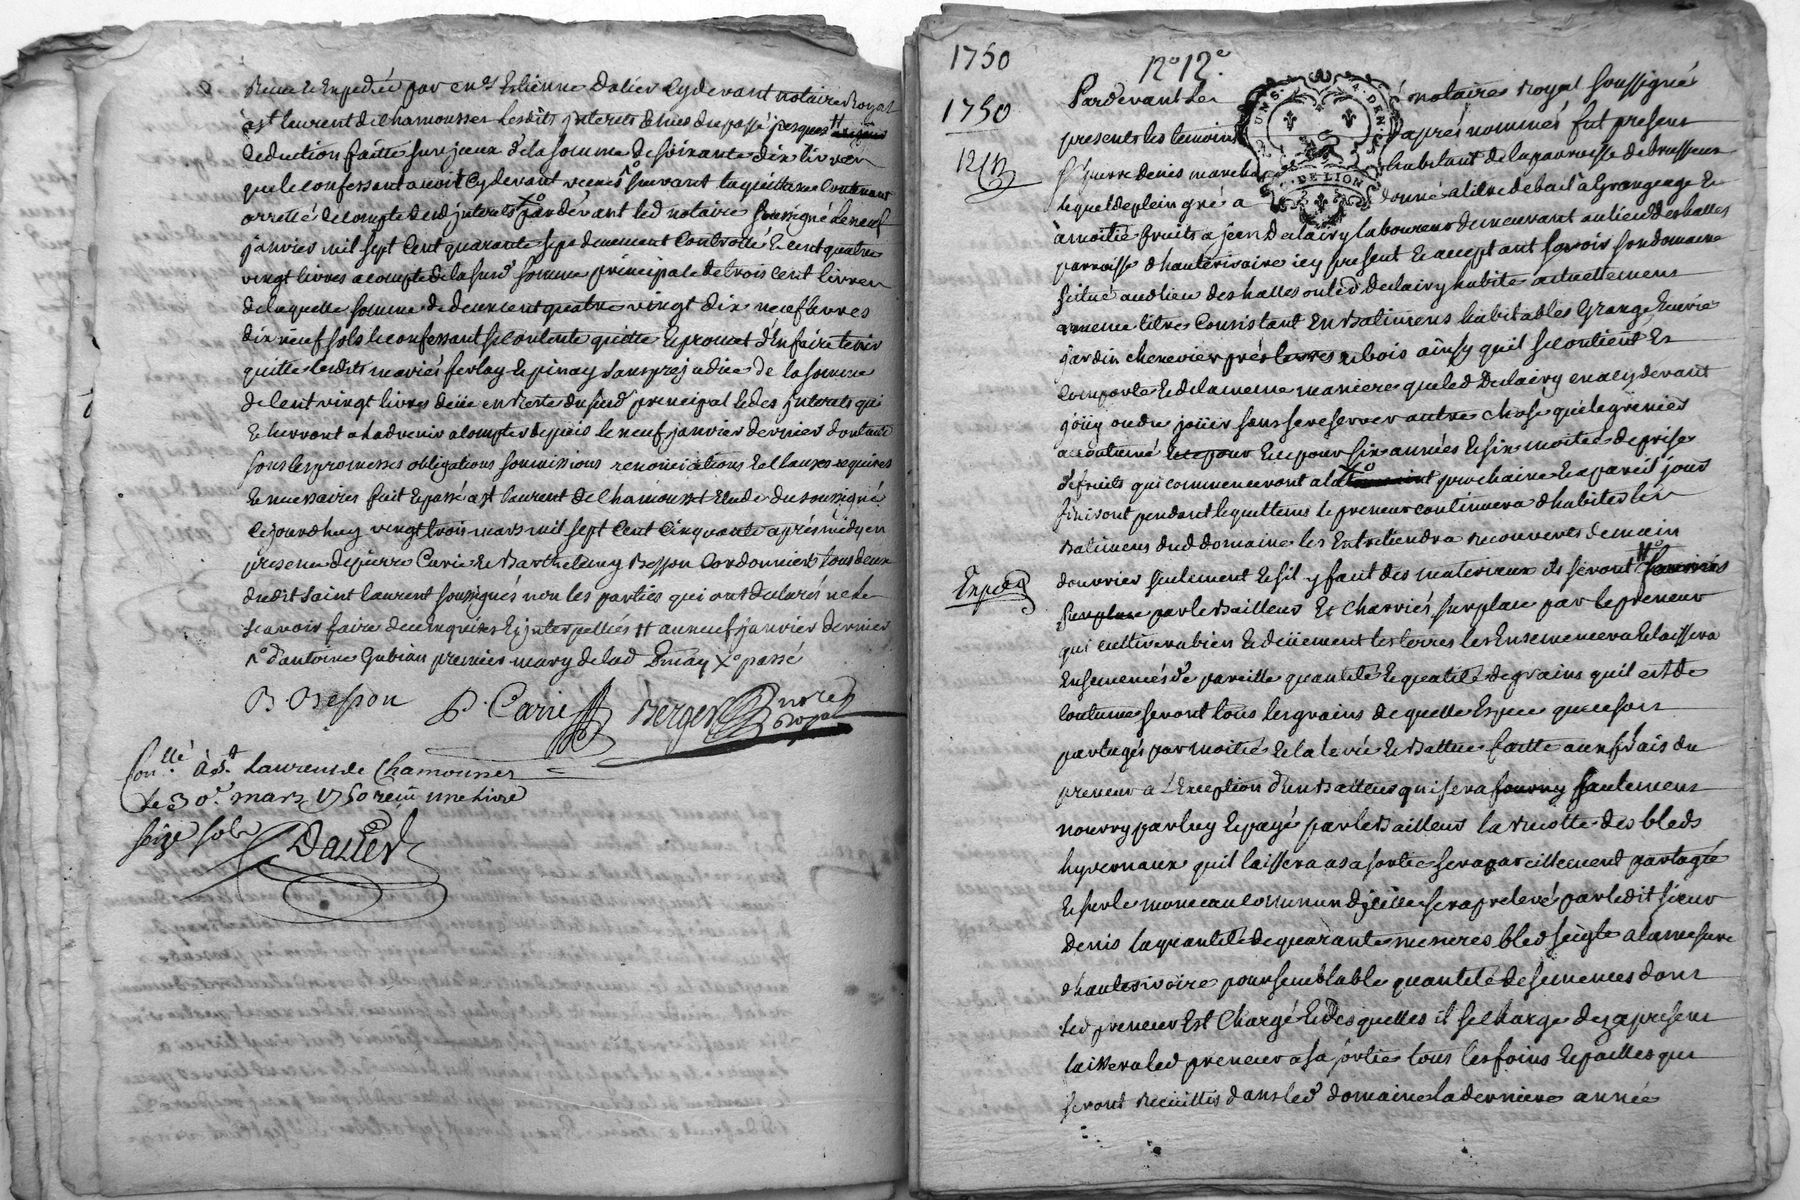 Receu et Expedié par me Estienne Dalier cy devant notaire Royal
a st laurent de Chamousset lesdits interets echus du passé jusques #
deduction faitte sur jceux de la somme de soixante dix livres
que le confessant a voit cy devant receües suivant la quittance contenant
arretté de compte desd interets Xo par devant led notaire soussigné le neuf
janvier mil sept cent quarante sept duement controllé et cent quatre
vingt livres a compte de la susd somme principale de trois cent livres
de laquelle somme de deux cent quatre vingt dix neuf livres
dix neuf sols le confessant se contente quitte et promet d'en faire tenir
quitte lesdits mariés ferlay et pinay sans prejudice de la somme
de Cent vingt livres deüe en Reste du susd principal et des jnterets qui
echerront a ladvenir a Compter depuis le neuf janvier dernier dont acte
sous les promesses obligations soumissions renonciations et Clauses requises
et necessaires fait et passé a st laurent de Chamousset Etude du soussigné
ce jourdhuy vingt trois mars mil sept Cent cinquante après midy en
presence de pierre Carrie et Barthelemy Besson Cordonniers tous deux
dudit saint laurent soussignés non les parties qui ont declarés ne le
sçavoir faire de ce enquises et jnterpellées # au neuf janvier dernier
d'antoine Gubian premier mary de lad Pinay Xo passé
B Besson P. Carrie Berger nore Royal
Con.llé à St. Laurens de Chamousset
le 30e. mars 1750 reçu une livre
seize sols
Dalier
1750
No 12e.
1750
Pardevant Le notaire Royal soussigné
presents les temoins après nommés fut present
sr Pierre denis marchand habitant de la parroisse de brussieux
lequel de plein gré a donné a titre de bail a Grangeage et
a moitié fruits a jean Declairy laboureur demeurant au lieu des halles
parroisse d'hauterivoire icy present et acceptant sçavoir son domaine
scitué audlieu des halles ou led Declairy habite actuellement
a meme titre Consistant En Batimens habitables Grange Ecurie
jardin chenevier près terres et bois ainsy quil se contient et
Comporte et de la meme maniere que led Declairy en a cy devant
joüy ou du joüir sans se reserver autre chose que le grenier
accoutumé Et ce pour six années et six moitié de prise
de fruits qui commenceront a la Xo prochaine et a pareil jour
finiront pendant lequel tems le preneur continuera d'habiter les
Batimens dud domaine les Entretiendra Recouverts de main
Exped
douvrier seulement et s'il y faut des materiaux ils seront #o
par le Bailleur Et Charriés sur place par le preneur
qui cultivera bien et düement les terres les Ensemencera et laissera
Ensemencés de pareille quantité et qualité de grains quil est de
Coutume seront tous les grains de quelle Espece que ce soit
partagés par moitié et la levée et Battue faitte aux frais du
preneur a L'Exception d'un Batteur qui sera seulement
nourry par luy et payé par le Bailleur la Recolte des bleds
hyvernaux quil laissera a sa sortie sera pareillement partagée
et sur le monceau commun d'jcelle sera prelevé par ledit sieur
denis la quantité de quarante mesures bled seigle a la mesure
d'hauterivoire pour semblable quantité de semences dont
led preneur Est Chargé et desquelles il se charge dez a present
laissera led preneur a sa sortie tous les foins et pailles qui
seront recüeillis dans led domaine la derniere année